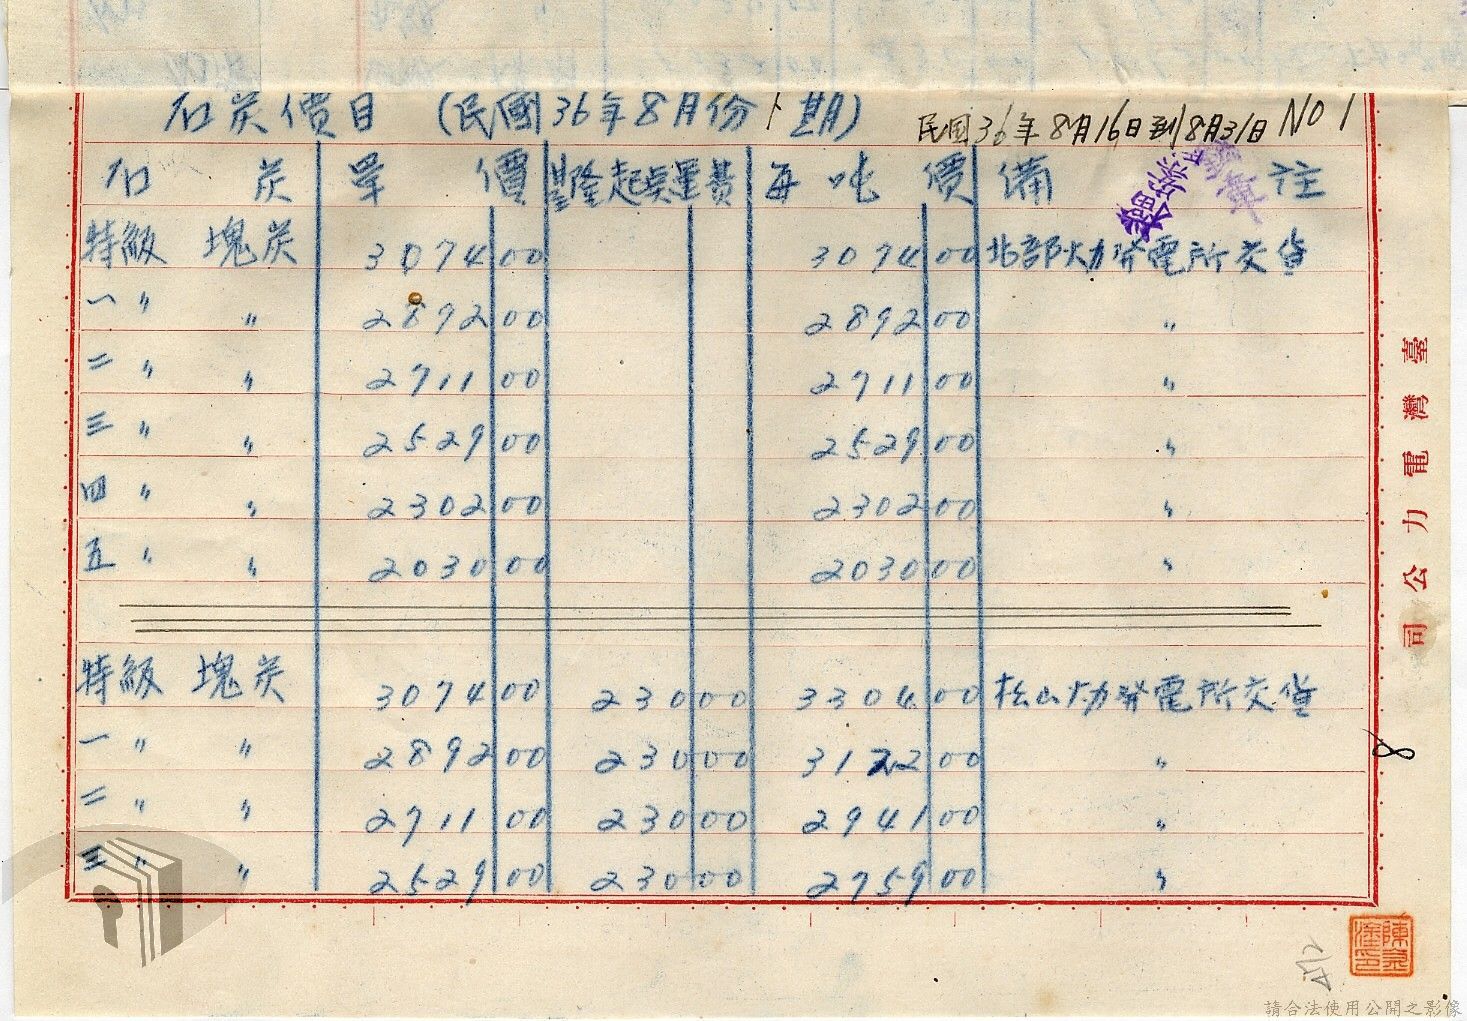 石炭價目 (民國36年8月份下期) 民國36年8月16日到8月31日 NO 1
石炭 單價 基隆起點運費 每吨價 備註
特級 塊炭 3074 00 3074 00 北部火力發電所交貨
一 〃 〃 2892 00 2892 00 〃
二 〃 〃 2711 00 2711 00 〃
三 〃 〃 2529 00 2529 00 〃
四 〃 〃 2302 00 2302 00 〃
五 〃 〃 2030 00 2030 00 〃
特級 塊炭 3074 00 230 00 3304 00 松山火力發電所交貨
一 〃 〃 2892 00 230 00 3122 00 〃
二 〃 〃 2711 00 230 00 2941 00 〃
三 〃 〃 2529 00 230 00 2759 00 〃
臺灣電力公司
8
請合法使用公開之影像